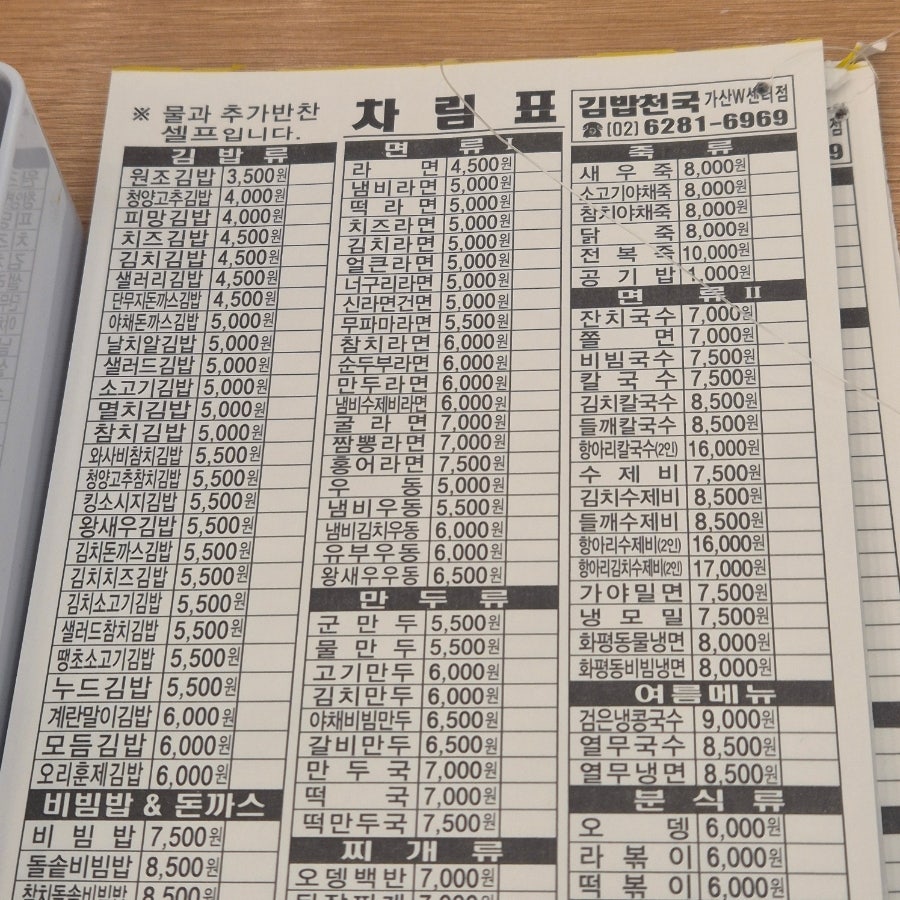 ※ 물과 추가반찬
셀프입니다.
차 림 표
김밥천국 가산W센터점
☎ (02) 6281-6969
김 밥 류
원조김밥 3,500원
청양고추김밥 4,000원
피망김밥 4,000원
치즈김밥 4,500원
김치김밥 4,500원
샐러리김밥 4,500원
단무지돈까스김밥 4,500원
야채돈까스김밥 5,000원
날치알김밥 5,000원
샐러드김밥 5,000원
소고기김밥 5,000원
멸치김밥 5,000원
참치김밥 5,000원
와사비참치김밥 5,500원
청양고추참치김밥 5,500원
킹소시지김밥 5,500원
왕새우김밥 5,500원
김치돈까스김밥 5,500원
김치치즈김밥 5,500원
김치소고기김밥 5,500원
샐러드참치김밥 5,500원
땡초소고기김밥 5,500원
누드김밥 5,500원
계란말이김밥 6,000원
모듬김밥 6,000원
오리훈제김밥 6,000원
비빔밥 & 돈까스
비 빔 밥 7,500원
돌솥비빔밥 8,500원
참치돌솥비빔밥 8,500원
면 류 I
라 면 4,500원
냄비라면 5,000원
떡 라 면 5,000원
치즈라면 5,000원
김치라면 5,000원
얼큰라면 5,000원
너구리라면 5,000원
신라면건면 5,000원
무파마라면 5,500원
참치라면 6,000원
순두부라면 6,000원
만두라면 6,000원
냄비수제비라면 6,000원
굴 라 면 7,000원
짬뽕라면 7,000원
홍어라면 7,500원
우 동 5,000원
냄비우동 5,500원
냄비김치우동 6,000원
유부우동 6,000원
왕새우우동 6,500원
만 두 류
군 만 두 5,500원
물 만 두 5,500원
고기만두 6,000원
김치만두 6,000원
야채비빔만두 6,500원
갈비만두 6,500원
만 두 국 7,000원
떡 국 7,000원
떡만두국 7,500원
찌 개 류
오뎅백반 7,000원
죽 류
새 우 죽 8,000원
소고기야채죽 8,000원
참치야채죽 8,000원
닭 죽 8,000원
전 복 죽 10,000원
공 기 밥 1,000원
면 류 II
잔치국수 7,000원
쫄 면 7,000원
비빔국수 7,500원
칼 국 수 7,500원
김치칼국수 8,500원
들깨칼국수 8,500원
항아리칼국수(2인) 16,000원
수 제 비 7,500원
김치수제비 8,500원
들깨수제비 8,500원
항아리수제비(2인) 16,000원
항아리김치수제비(2인) 17,000원
가야밀면 7,500원
냉 모 밀 7,500원
화평동물냉면 8,000원
화평동비빔냉면 8,000원
여름메뉴
검은냉콩국수 9,000원
열무국수 8,500원
열무냉면 8,500원
분 식 류
오 뎅 6,000원
라 볶 이 6,000원
떡 볶 이 6,000원